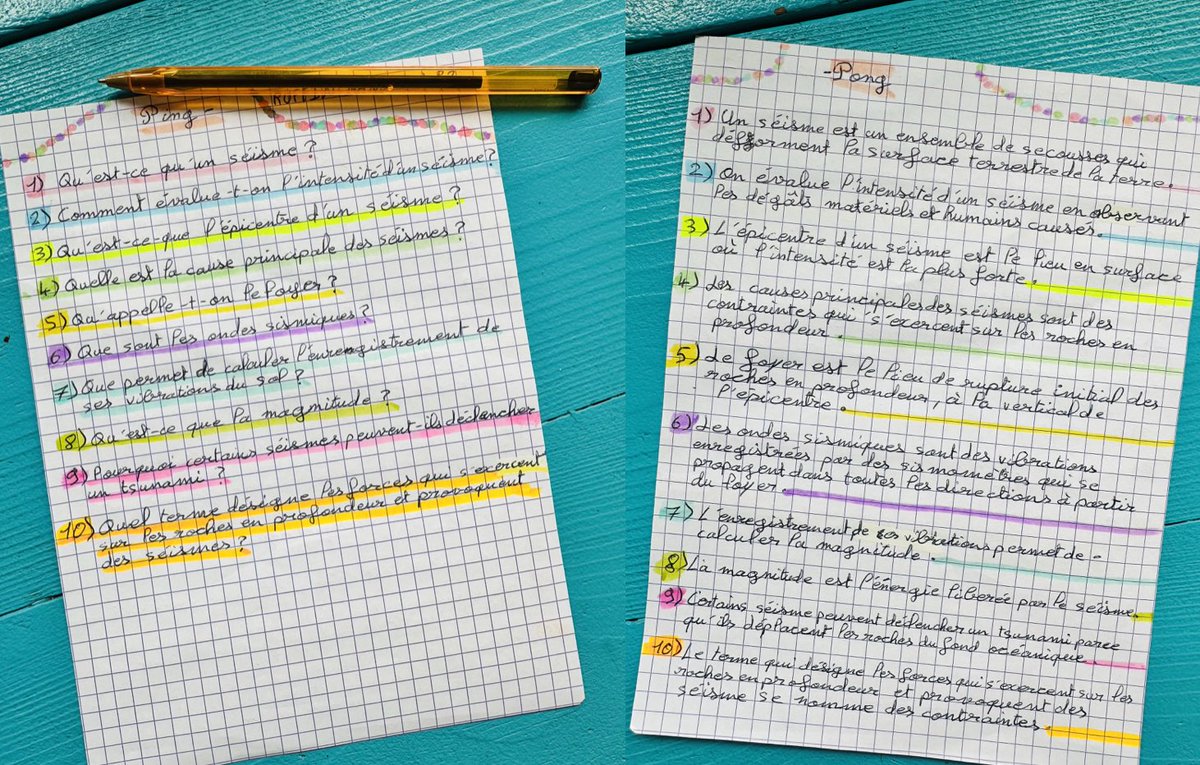 -Ping-
1) Qu'est-ce qu'un séisme ?
2) Comment évalue-t-on l'intensité d'un séisme ?
3) Qu'est-ce que l'épicentre d'un séisme ?
4) Quelle est la cause principale des séismes ?
5) Qu'appelle-t-on le foyer ?
6) Que sont les ondes sismiques ?
7) Que permet de calculer l'enregistrement de
ses vibrations du sol ?
8) Qu'est-ce que la magnitude ?
9) Pourquoi certains séismes peuvent-ils déclencher
un tsunami ?
10) Quel terme désigne les forces qui s'exercent
sur les roches en profondeur et provoquent
des séismes ?
-Pong
1) Un séisme est un ensemble de secousses qui
déforment la surface terrestre de la terre.
2) On évalue l'intensité d'un séisme en observant
les dégâts matériels et humains causés.
3) L'épicentre d'un séisme est le lieu en surface
où l'intensité est la plus forte.
4) Les causes principales des séismes sont des
contraintes qui s'exercent sur les roches en
profondeur.
5) Le foyer est le lieu de rupture initial des
roches en profondeur, à la vertical de
l'épicentre.
6) Les ondes sismiques sont des vibrations
enregistrées par des sismomètres qui se
propagent dans toutes les directions à partir
du foyer.
7) L'enregistrement de ses vibrations permet de -
calculer la magnitude.
8) La magnitude est l'énergie libérée par le séisme.
9) Certains séisme peuvent déclencher un tsunami parce
qu'ils déplacent les roches du fond océanique.
10) Le terme qui désigne les forces qui s'exercent sur les
roches en profondeur et provoquent des
séisme se nomme des contraintes.